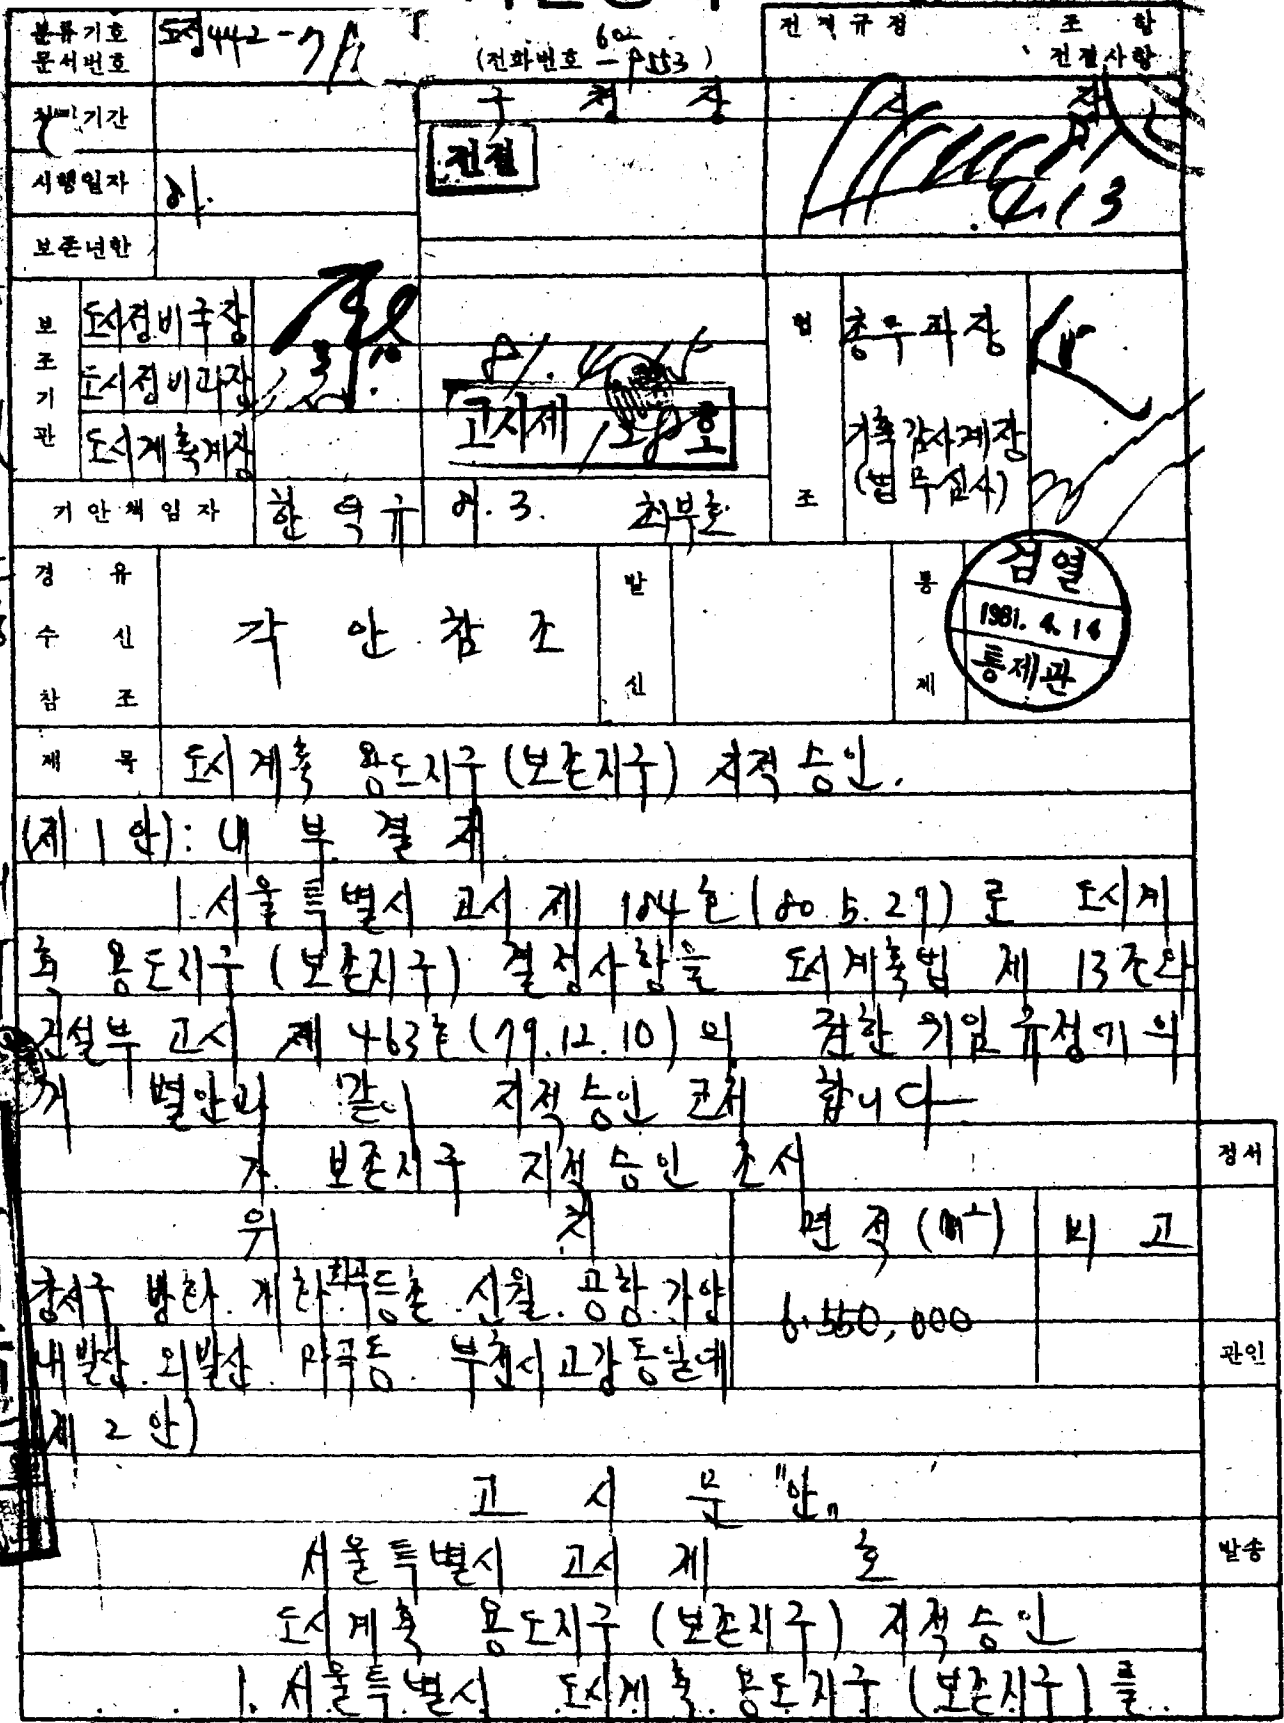 분류기호 문서번호 도정442-
(전화번호
전결규정 조 항
전결사항
기간
구 청 장
전결
시행일자 81.
4.13
보존년한
보조기관
도시정비국장
도시정비과장
도시계획계장
81. 4.
고시제 호
법조
총무과장
기획감사계장
(법무심사)
기안책임자 한 덕 규 81. 3.
경유 수신 참조
각 안 참 조
발신
통제
검열
1981. 4. 14
통제관
제 목 도시계획 용도지구(보존지구) 지적승인.
(제 1 안): 내 부 결 재
1. 서울특별시 고시 제 184호(80. 5. 27)로 도시계
획 용도지구(보존지구) 결정사항을 도시계획법 제 13조와
건설부 고시 제 463호(79.12.10)의 권한 위임 규정에 의
거 별안과 같이 지적승인 코저 합니다
가. 보존지구 지적승인 조서
정서
위 치 면 적(m²) 비 고
강서구 방화. 개화. 화곡 등촌. 신월. 공항. 가양
6.550,000
내발산. 외발산. 마곡동. 부천시 고강동일대
관인
제 2 안)
고 시 문 "안"
서울특별시 고시 제 호
발송
도시계획 용도지구(보존지구) 지적승인
1. 서울특별시 도시계획 용도지구(보존지구)를